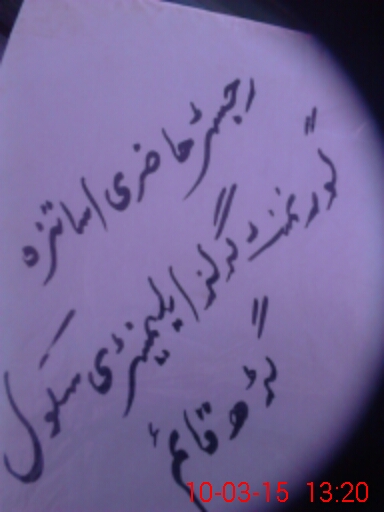 رجسٹر حاضری اساتذہ
گورنمنٹ گرلز ایلیمنٹری سکول
گڑھ قائم
10-03-15 13:20